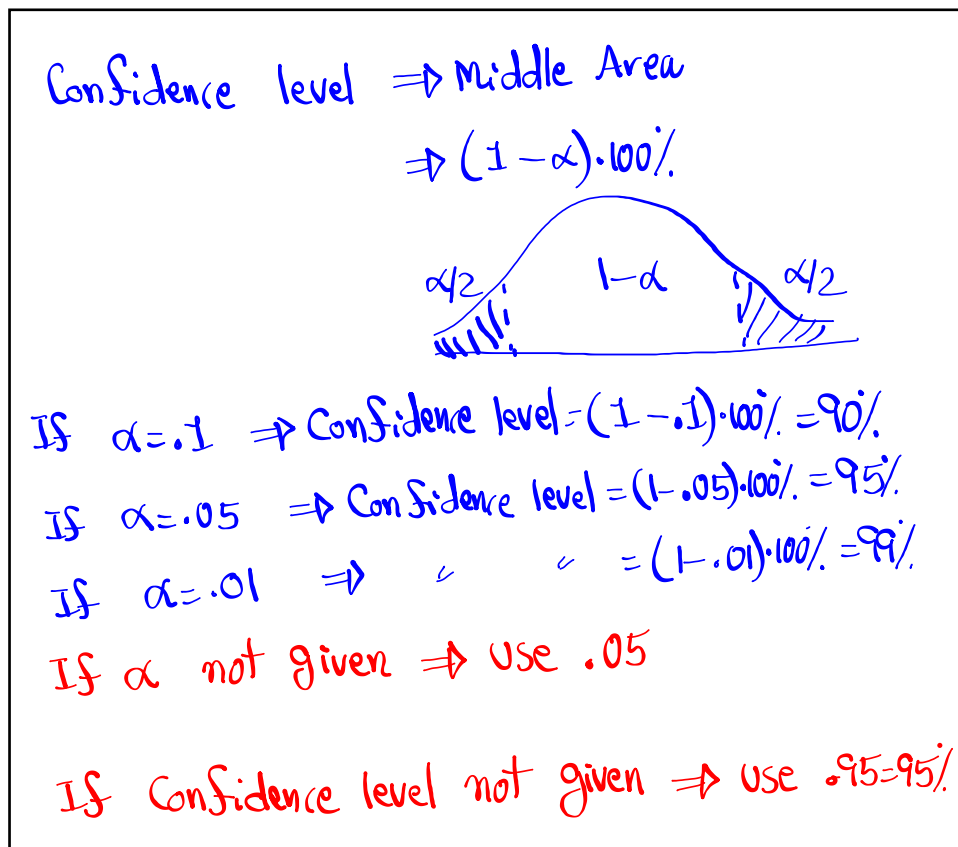 Confidence level ⇒ Middle Area
⇒ (1-α)·100%
α/2 1-α α/2
If α=.1 ⇒ Confidence level=(1-.1)·100%=90%
If α=.05 ⇒ Confidence level=(1-.05)·100%=95%
If α=.01 ⇒ " " =(1-.01)·100%=99%
If α not given ⇒ use .05
If Confidence level not given ⇒ use .95=95%